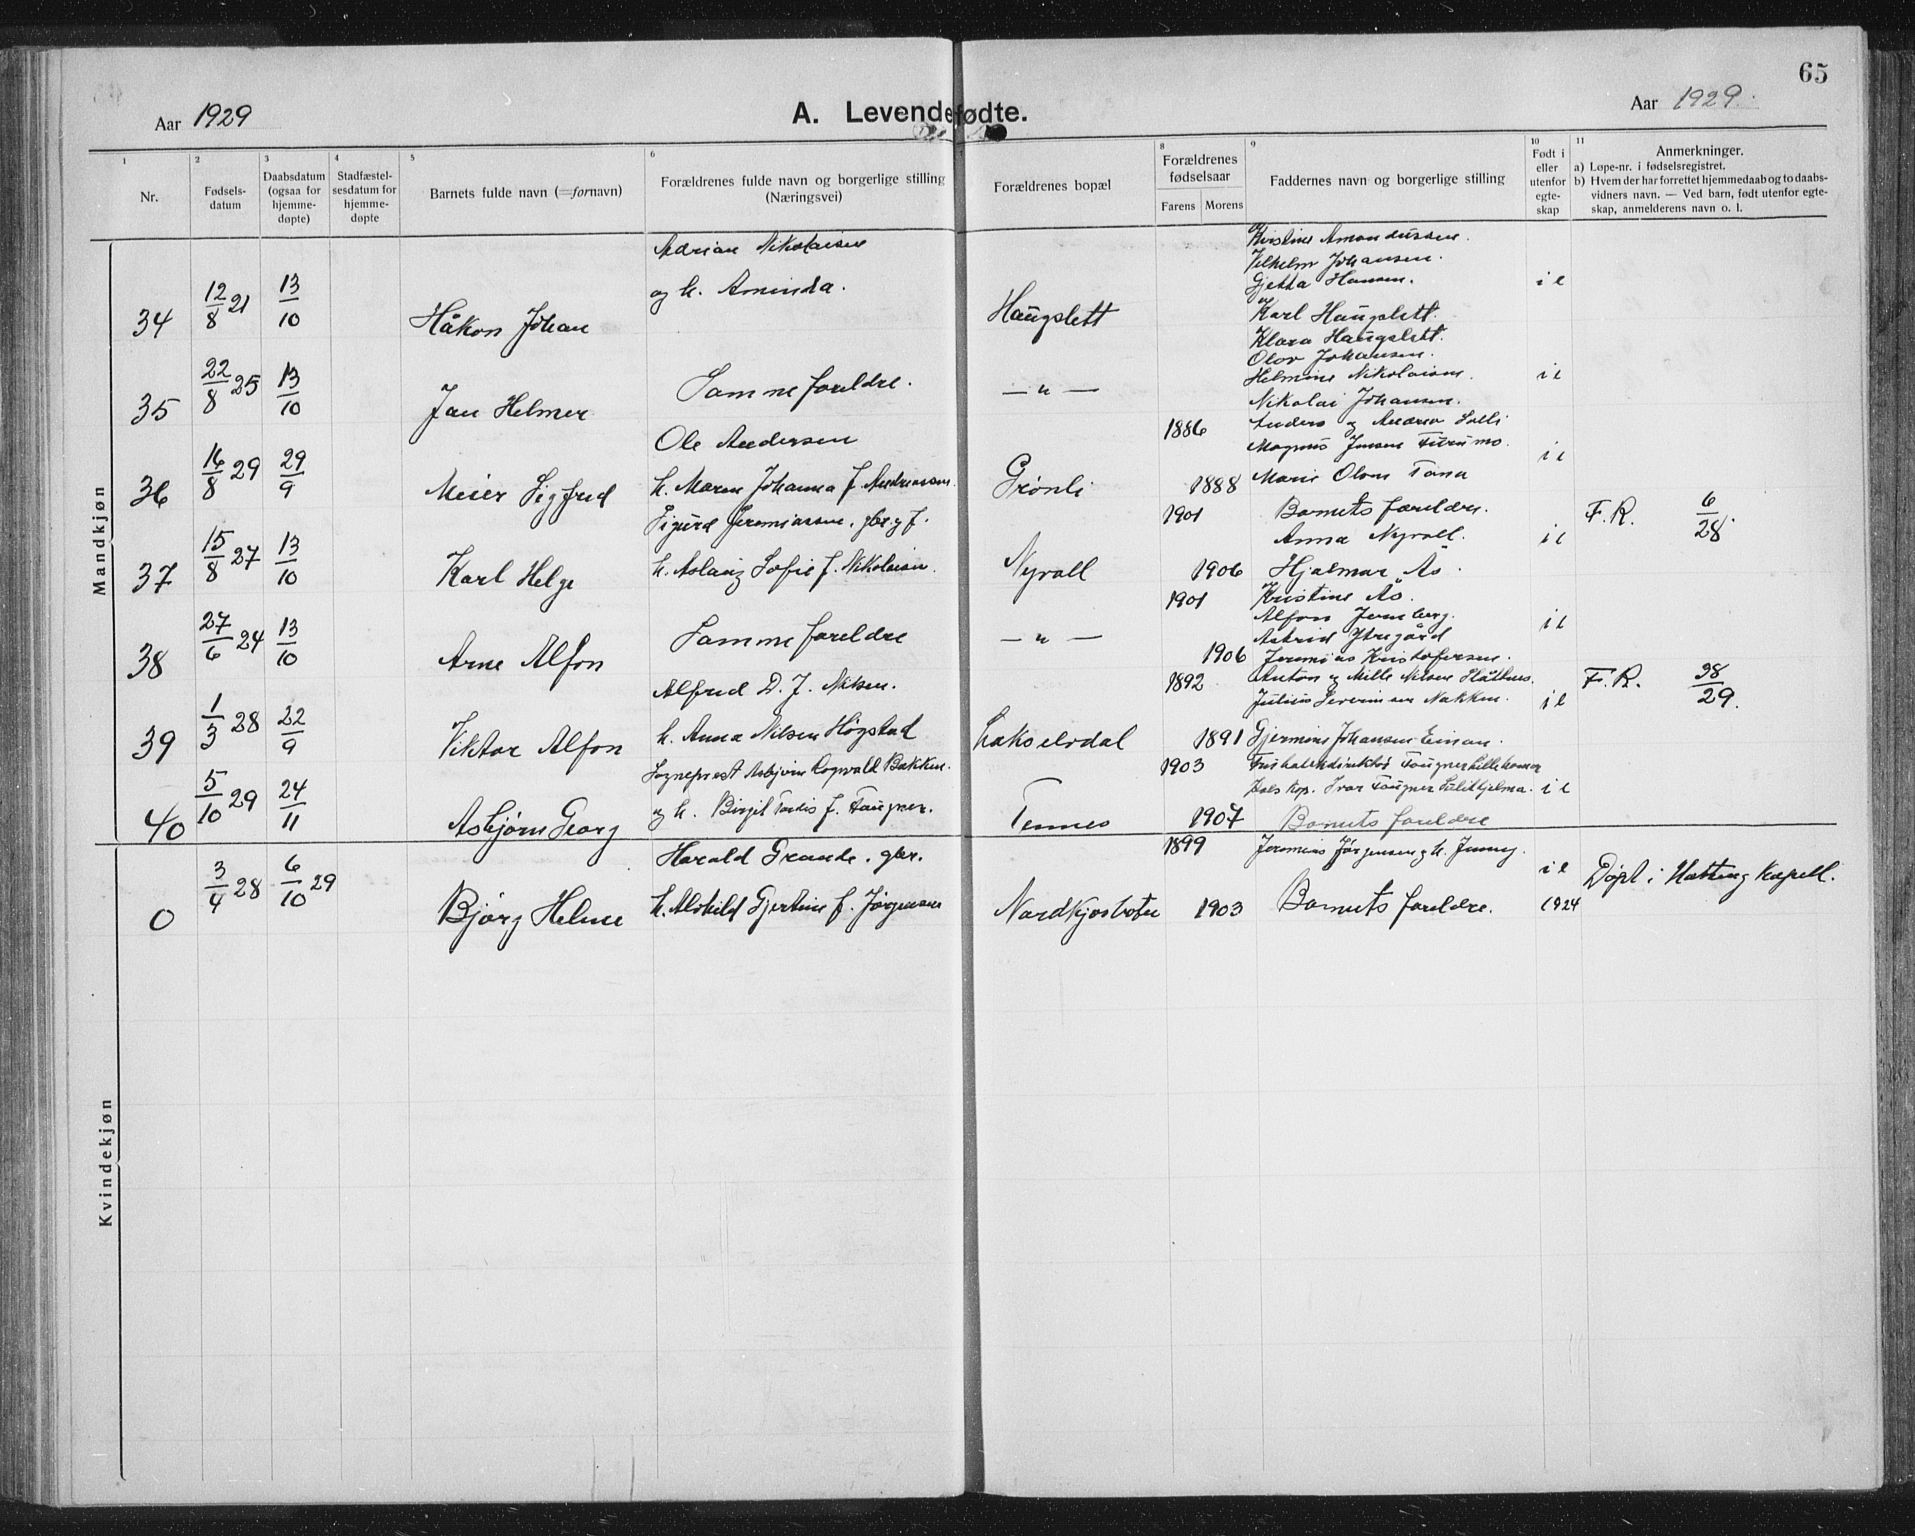 65
Aar 1929
A. Levendefødte.
Aar 1929.
1 2 3 4 5 6 8 9 10 11
Nr.
Fødsels-
datum
Daabsdatum
(ogsaa for
hjemme-
døpte)
Stadfæstel-
sesdatum for
hjemme-
døpte
Barnets fulde navn (=fornavn)
Forældrenes fulde navn og borgerlige stilling
(Næringsvei)
Forældrenes bopæl
Forældrenes
fødselsaar
Farens Morens
Faddernes navn og borgerlige stilling
Født i
eller
utenfor
egte-
skap
Anmerkninger.
a) Løpe-nr. i fødselsregistret.
b) Hvem der har forrettet hjemmedaab og to daabs-
vidners navn. — Ved barn, født utenfor egte-
skap, anmelderens navn o. l.
Mandkjøn
34 12/8 21 13/10 Håkon Johan
Adrian Nikolaisen
og h. Aminda.
Haugslett
Kristine Amandussen.
Vilhelm Johansen.
Gjetta Hansen.
Karl Haugslett.
Klara Haugslett.
i e
35 22/8 25 13/10 Jan Helmer
Samme foreldre.
— " —
Olov Johansen.
Helmine Nikolaisen.
Nikolai Johansen.
i e
36 16/8 29 29/9 Meier Sigfred
Ole Andersen
h. Maren Johanna f. Andreassen.
Grønli
1886 1888
Anders og Andrea Solli
Magnus Jensen Furumo.
Marie Olsen Tana
i e
37 15/8 27 13/10 Karl Helge
Sigurd Jeremiassen, gbr. og f.
h. Aslaug Sofie f. Nikolaisen.
Nyvoll
1901 1906
Barnets foreldre.
Anna Nyvoll.
Hjalmar Ås.
Kristine Ås.
i e
F. R. 6/28.
38 27/6 24 13/10 Arne Alfon
Samme foreldre
— " —
1901 1906
Alfon Jernberg.
Astrid Ytregård
Jeremias Kristofersen.
i e
39 1/3 28 22/9 Viktor Alfon
Alfred D. J. Nilsen.
h. Anna Nilsen Høgstad
Lakselvdal
1892 1891
Anton og Mille Nilsen
Julius Severinsen Nakken.
Gjermine Johansen
i e
F. R. 38/29.
40 5/10 29 24/11 Asbjørn Georg
Sogneprest Asbjørn Rognvald Bakken.
og h. Birgit f. Faugner.
Tennes
1903 1907
Faugner Lillehamar
Ivar Faugner Sulitjelma.
Barnets foreldre
i e
Kvindekjøn
0 3/4 28 6/10 29 Bjørg Helene
Harald Grande, gbr.
h. Alvhild Gjertine f. Jørgensen
Nordkjosbotn
1899 1903
Jeremias Jørgensen og h. Jenny.
Barnets foreldre.
i e
1924
Døpt i Hatteng Kapell.